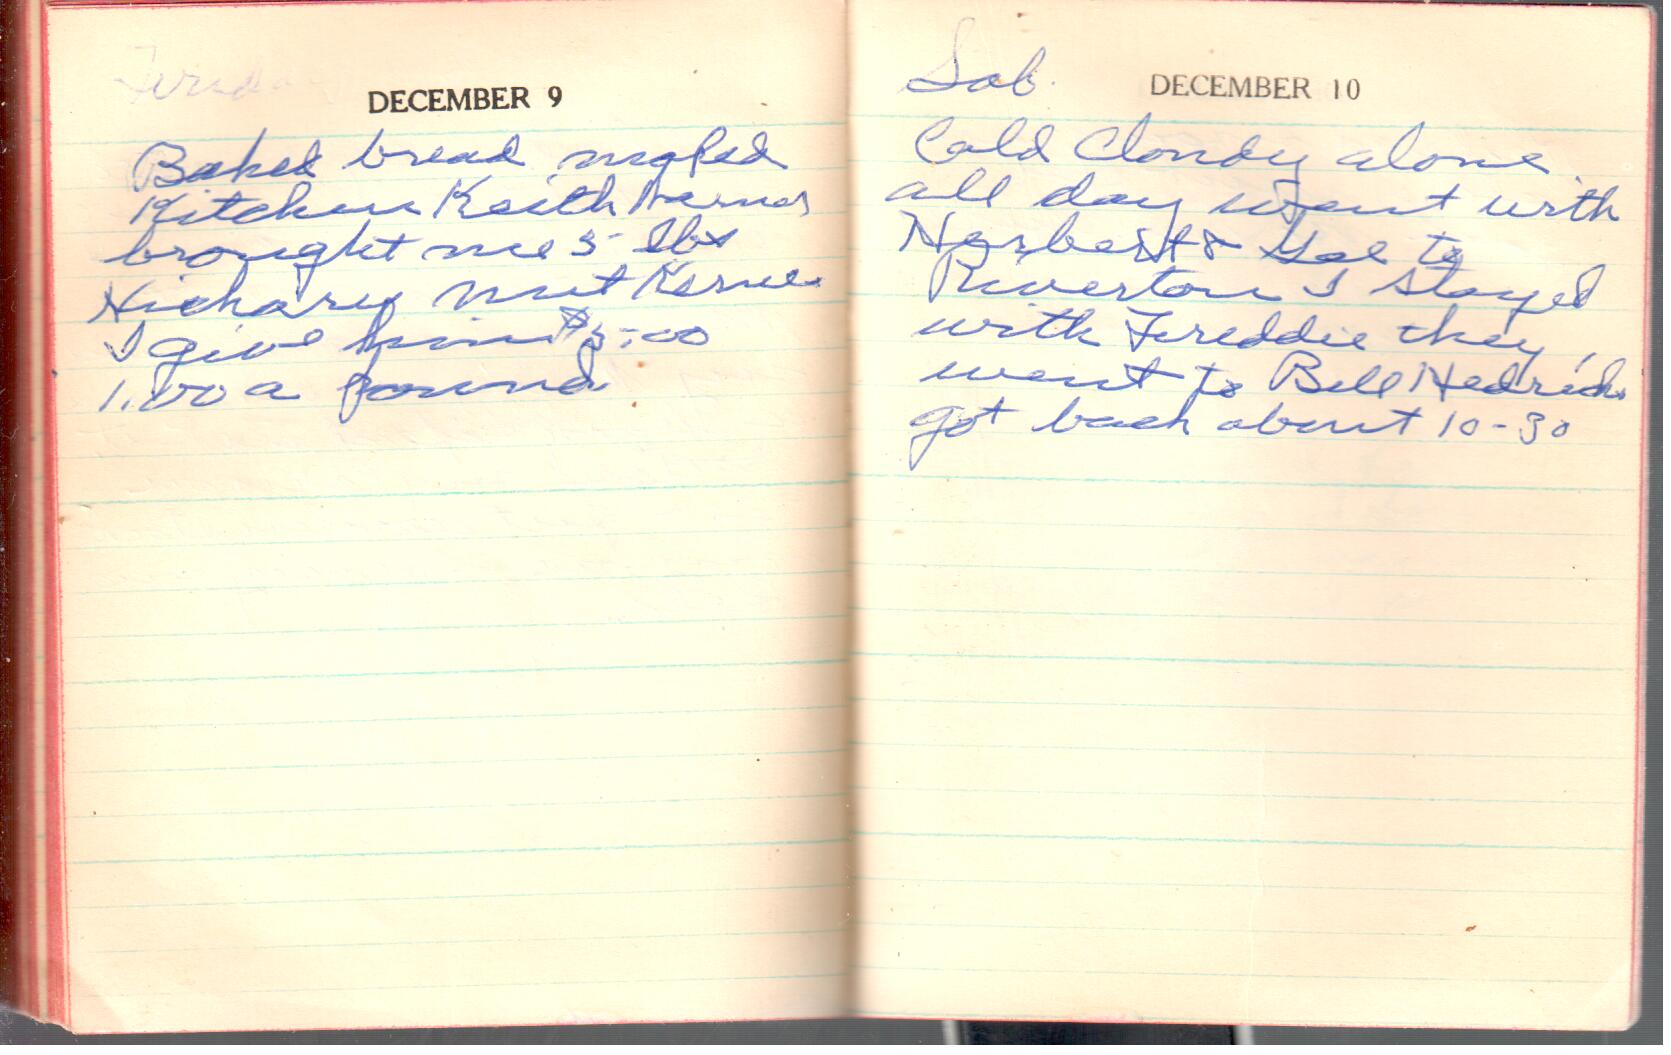 DECEMBER 9
Baked bread moped
Kitchen Keith
brought me 5 lbs
Hickary nut
I give him $5.00
1.00 a pound
Sab. DECEMBER 10
Cold Cloudy alone
all day went with
Norbert & to
Riverton I stayed
with Freddie they
went to Bill Hedricks
got back about 10-30